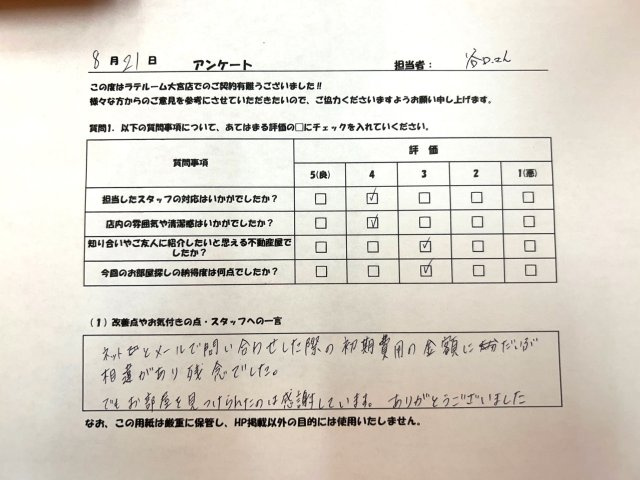 8月21日 アンケート 担当者：谷口さん
この度はラテルーム大宮店でのご契約有難うございました!!
様々な方からのご意見を参考にさせていただきたいので、ご協力くださいますようお願い申し上げます。
質問1．以下の質問事項について、あてはまる評価の□にチェックを入れていください。
質問事項 評価
5(良) 4 3 2 1(悪)
担当したスタッフの対応はいかがでしたか？
店内の雰囲気や清潔感はいかがでしたか？
知り合いやご友人に紹介したいと思える不動産屋で
したか？
今回のお部屋探しの納得度は何点でしたか？
(1) 改善点やお気付きの点・スタッフへの一言
ネット上とメールで問い合わせした際の初期費用の金額にだいぶ
相違があり残念でした。
でもお部屋を見つけられたのは感謝しています。ありがとうございました
なお、この用紙は厳重に保管し、HP掲載以外の目的には使用いたしません。